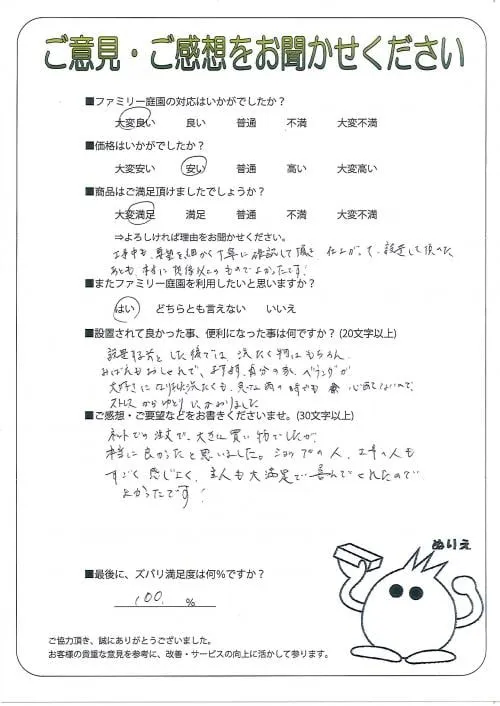 ご意見・ご感想をお聞かせください
■ファミリー庭園の対応はいかがでしたか？
大変良い 良い 普通 不満 大変不満
■価格はいかがでしたか？
大変安い 安い 普通 高い 大変高い
■商品はご満足頂けましたでしょうか？
大変満足 満足 普通 不満 大変不満
⇒よろしければ理由をお聞かせください。
工事中も、要望を細かく丁寧に確認して頂き 仕上がって、設置して頂いた
あとも、本当に 以上のものでよかったです！
■またファミリー庭園を利用したいと思いますか？
はい どちらとも言えない いいえ
■設置されて良かった事、便利になった事は何ですか？(20文字以上)
設置 した後では 洗たく物はもちろん、
おしゃれで、ますます、自分の家、ベランダが
大好きになり 洗たくも、急な雨の時も 心配ないので、
ストレスからゆとりにかわりました
■ご感想・ご要望などをお書きくださいませ。(30文字以上)
ネットでの注文で、大きな買い物でしたが、
本当に良かったと思いました。ショップの人、工事の人も
すごく感じよく、主人も大満足で喜んでくれたので
よかったです！
ぬりえ
■最後に、ズバリ満足度は何％ですか？
100 %
ご協力頂き、誠にありがとうございました。
お客様の貴重な意見を参考に、改善・サービスの向上に活かして参ります。